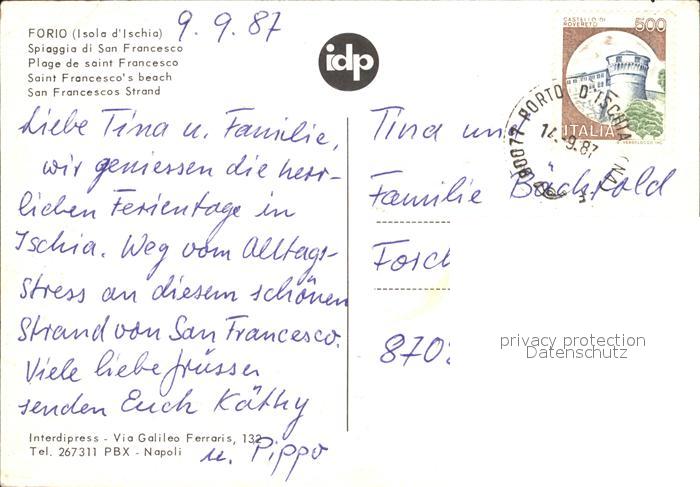 FORIO (Isola d'Ischia)
Spiaggia di San Francesco
Plage de saint Francesco
Saint Francesco's beach
San Francescos Strand
9. 9. 87
idp
CASTELLO DI
ROVERETO
500
ITALIA
80077 PORTO D'ISCHIA (NA)
14.-9.87
Liebe Tina u. Familie,
wir geniessen die herr-
lichen Ferientage in
Ischia. Weg vom Alltags-
stress an diesem schönen
Strand von San Francesco.
Viele liebe Grüsse
senden Euch Käthy
u. Pippo
Tina un
Familie Bächtold
Forch
870
privacy protection
Datenschutz
Interdipress - Via Galileo Ferraris, 132
Tel. 267311 PBX - Napoli